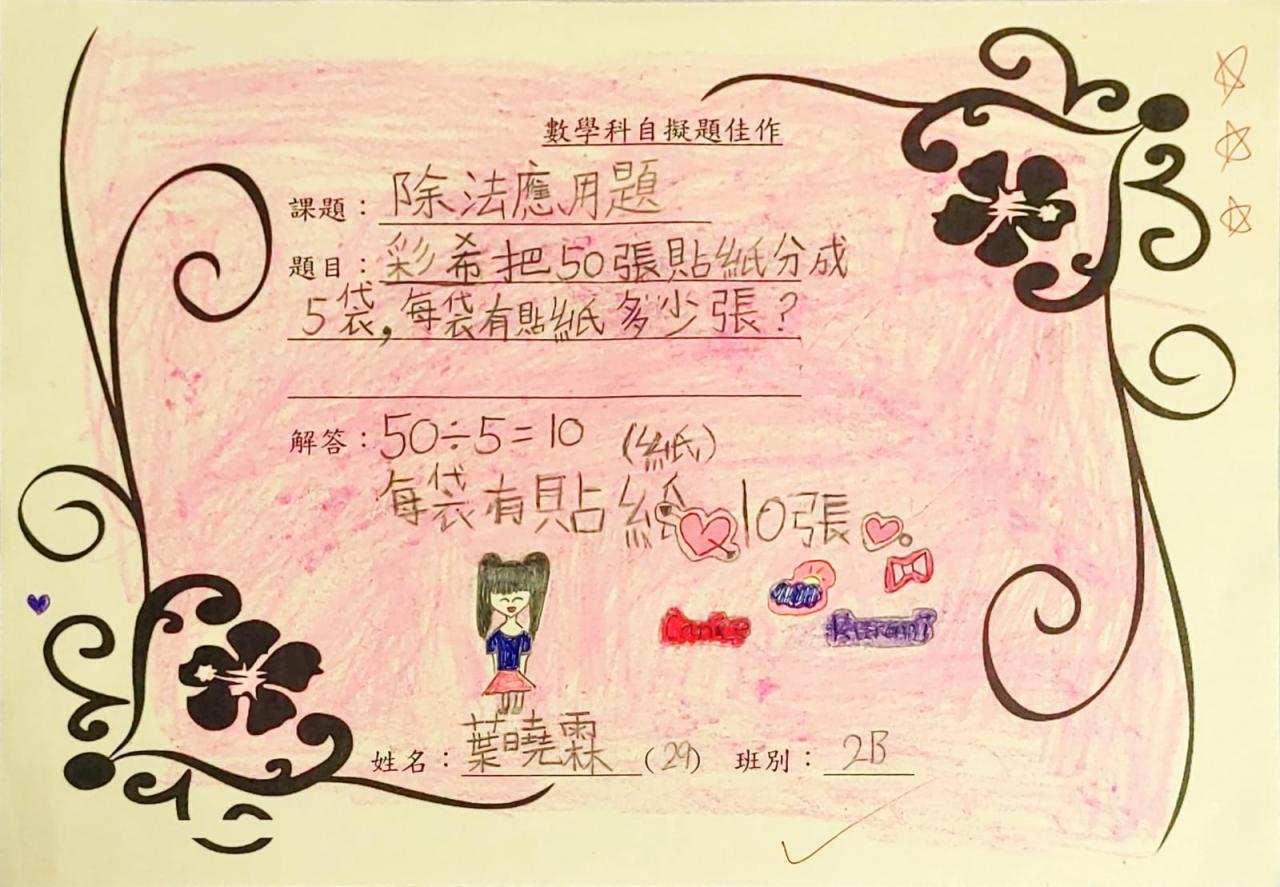 數學科自擬題佳作
課題：除法應用題
題目：彩希把50張貼紙分成
5袋，每袋有貼紙多少張？
解答：50÷5=10 (紙)
每袋有貼紙10張
姓名：葉曉霖(29) 班別：2B